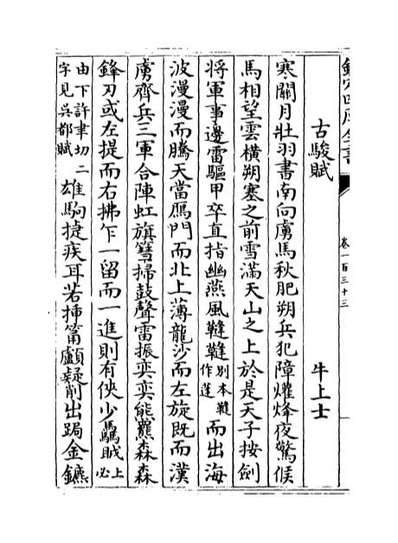 欽定四庫全書
卷一百三十三
古駿賦
牛上士
寒關月壯羽書南向虜馬秋肥朔兵犯障爟烽夜驚候
馬相望雲橫朔塞之前雪滿天山之上於是天子按劍
將軍事邊雷驅甲卒直指幽燕風韃韃別本韃作蓬而出海
波漫漫而騰天當鴈門而北上薄龍沙而左旋既而漢
虜齊兵三軍合陣虹旗彗掃鼓聲雷振奕奕熊羆森森
鋒刃或左提而右拂乍一留而一進則有俠少驫駥上必
由下許聿切二字見吳都賦雄駒捷疾耳若揷筩顱疑削出跼金鑣